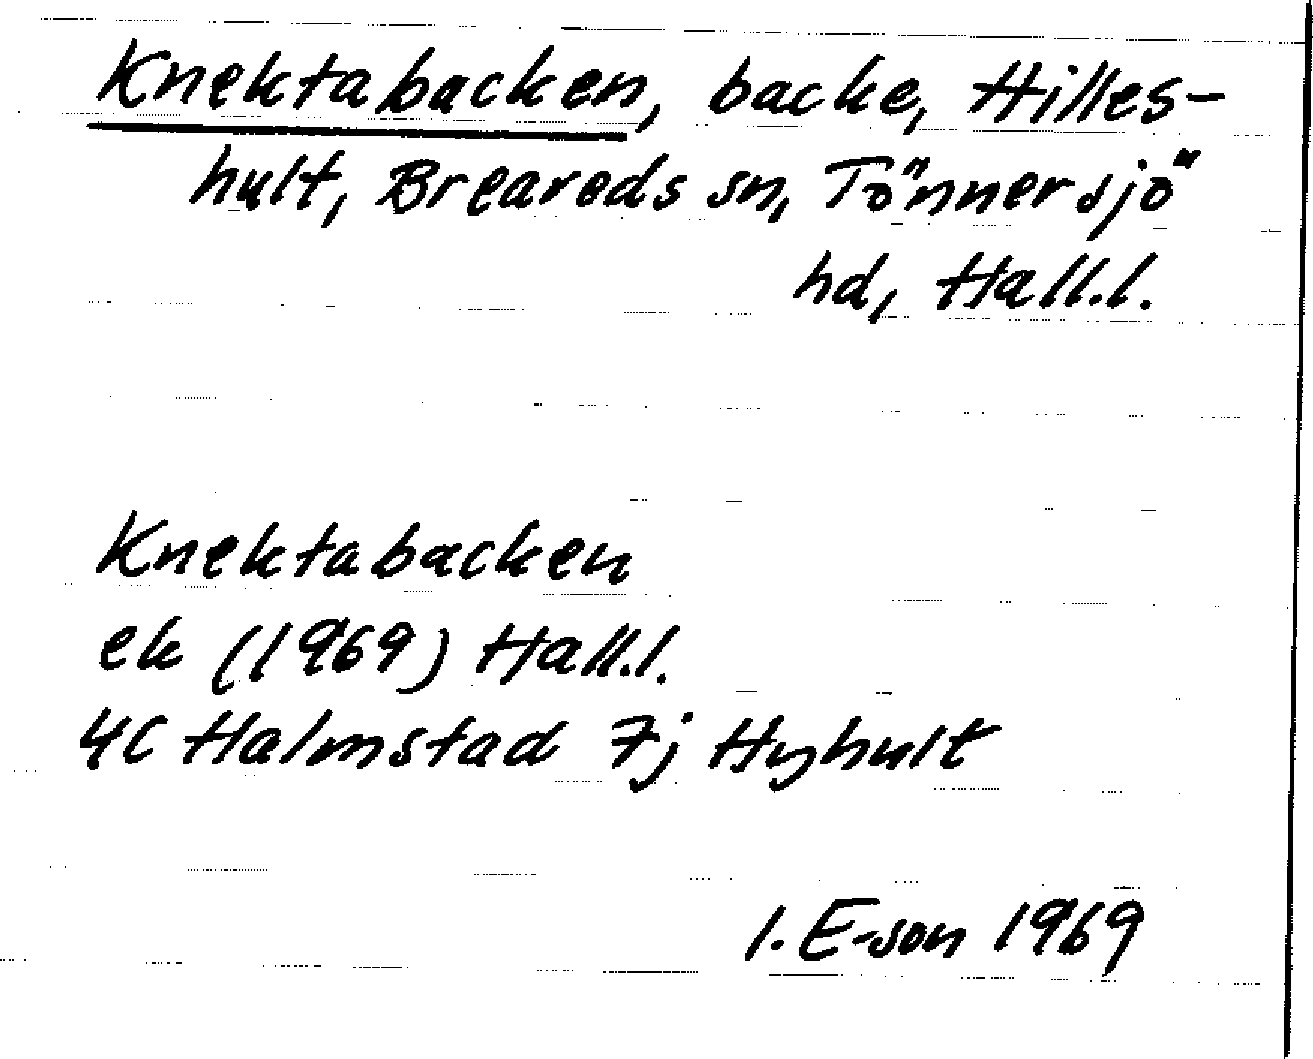 Knektabacken, backe, Hilles-
hult, Breareds sn, Tönnersjö
hd, Hall.l.
Knektabacken
ek (1969) Hall.l.
4C Halmstad 7j Hyhult
I. E-son 1969